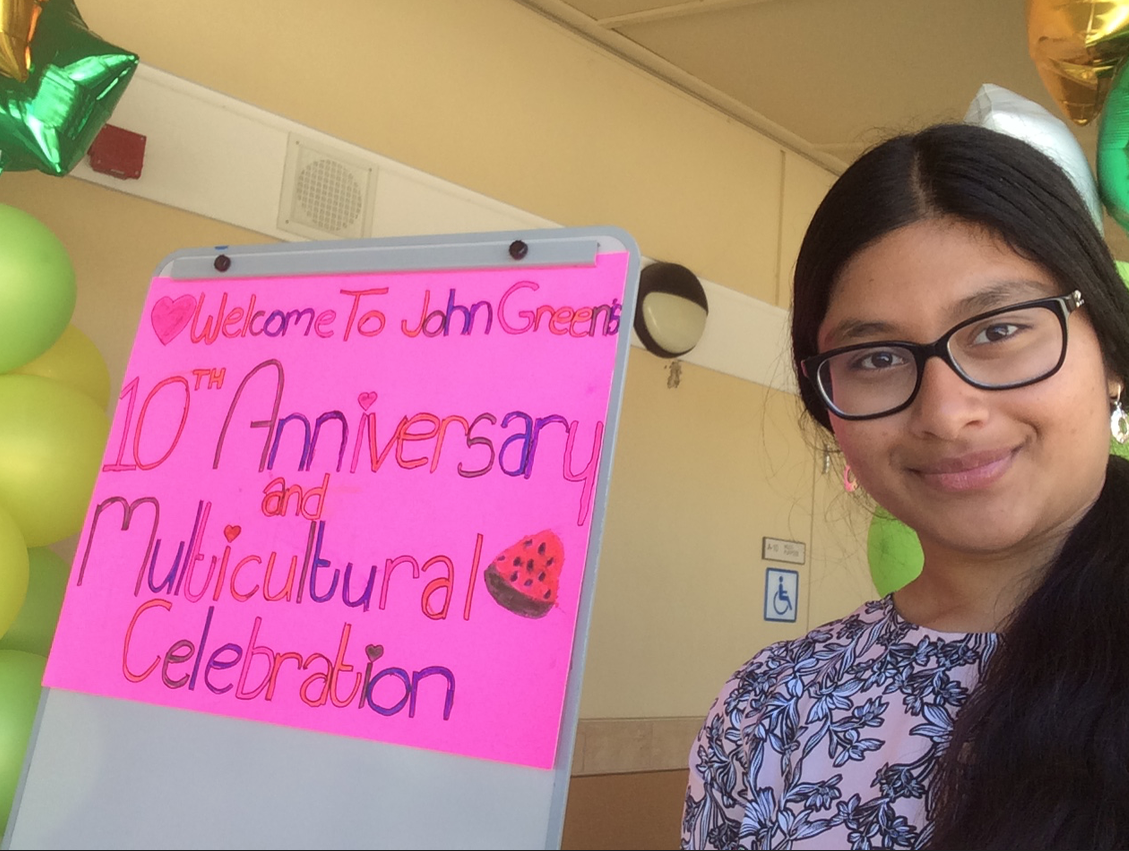 Welcome To John Green's
10TH Anniversary
and
Multicultural
Celebration